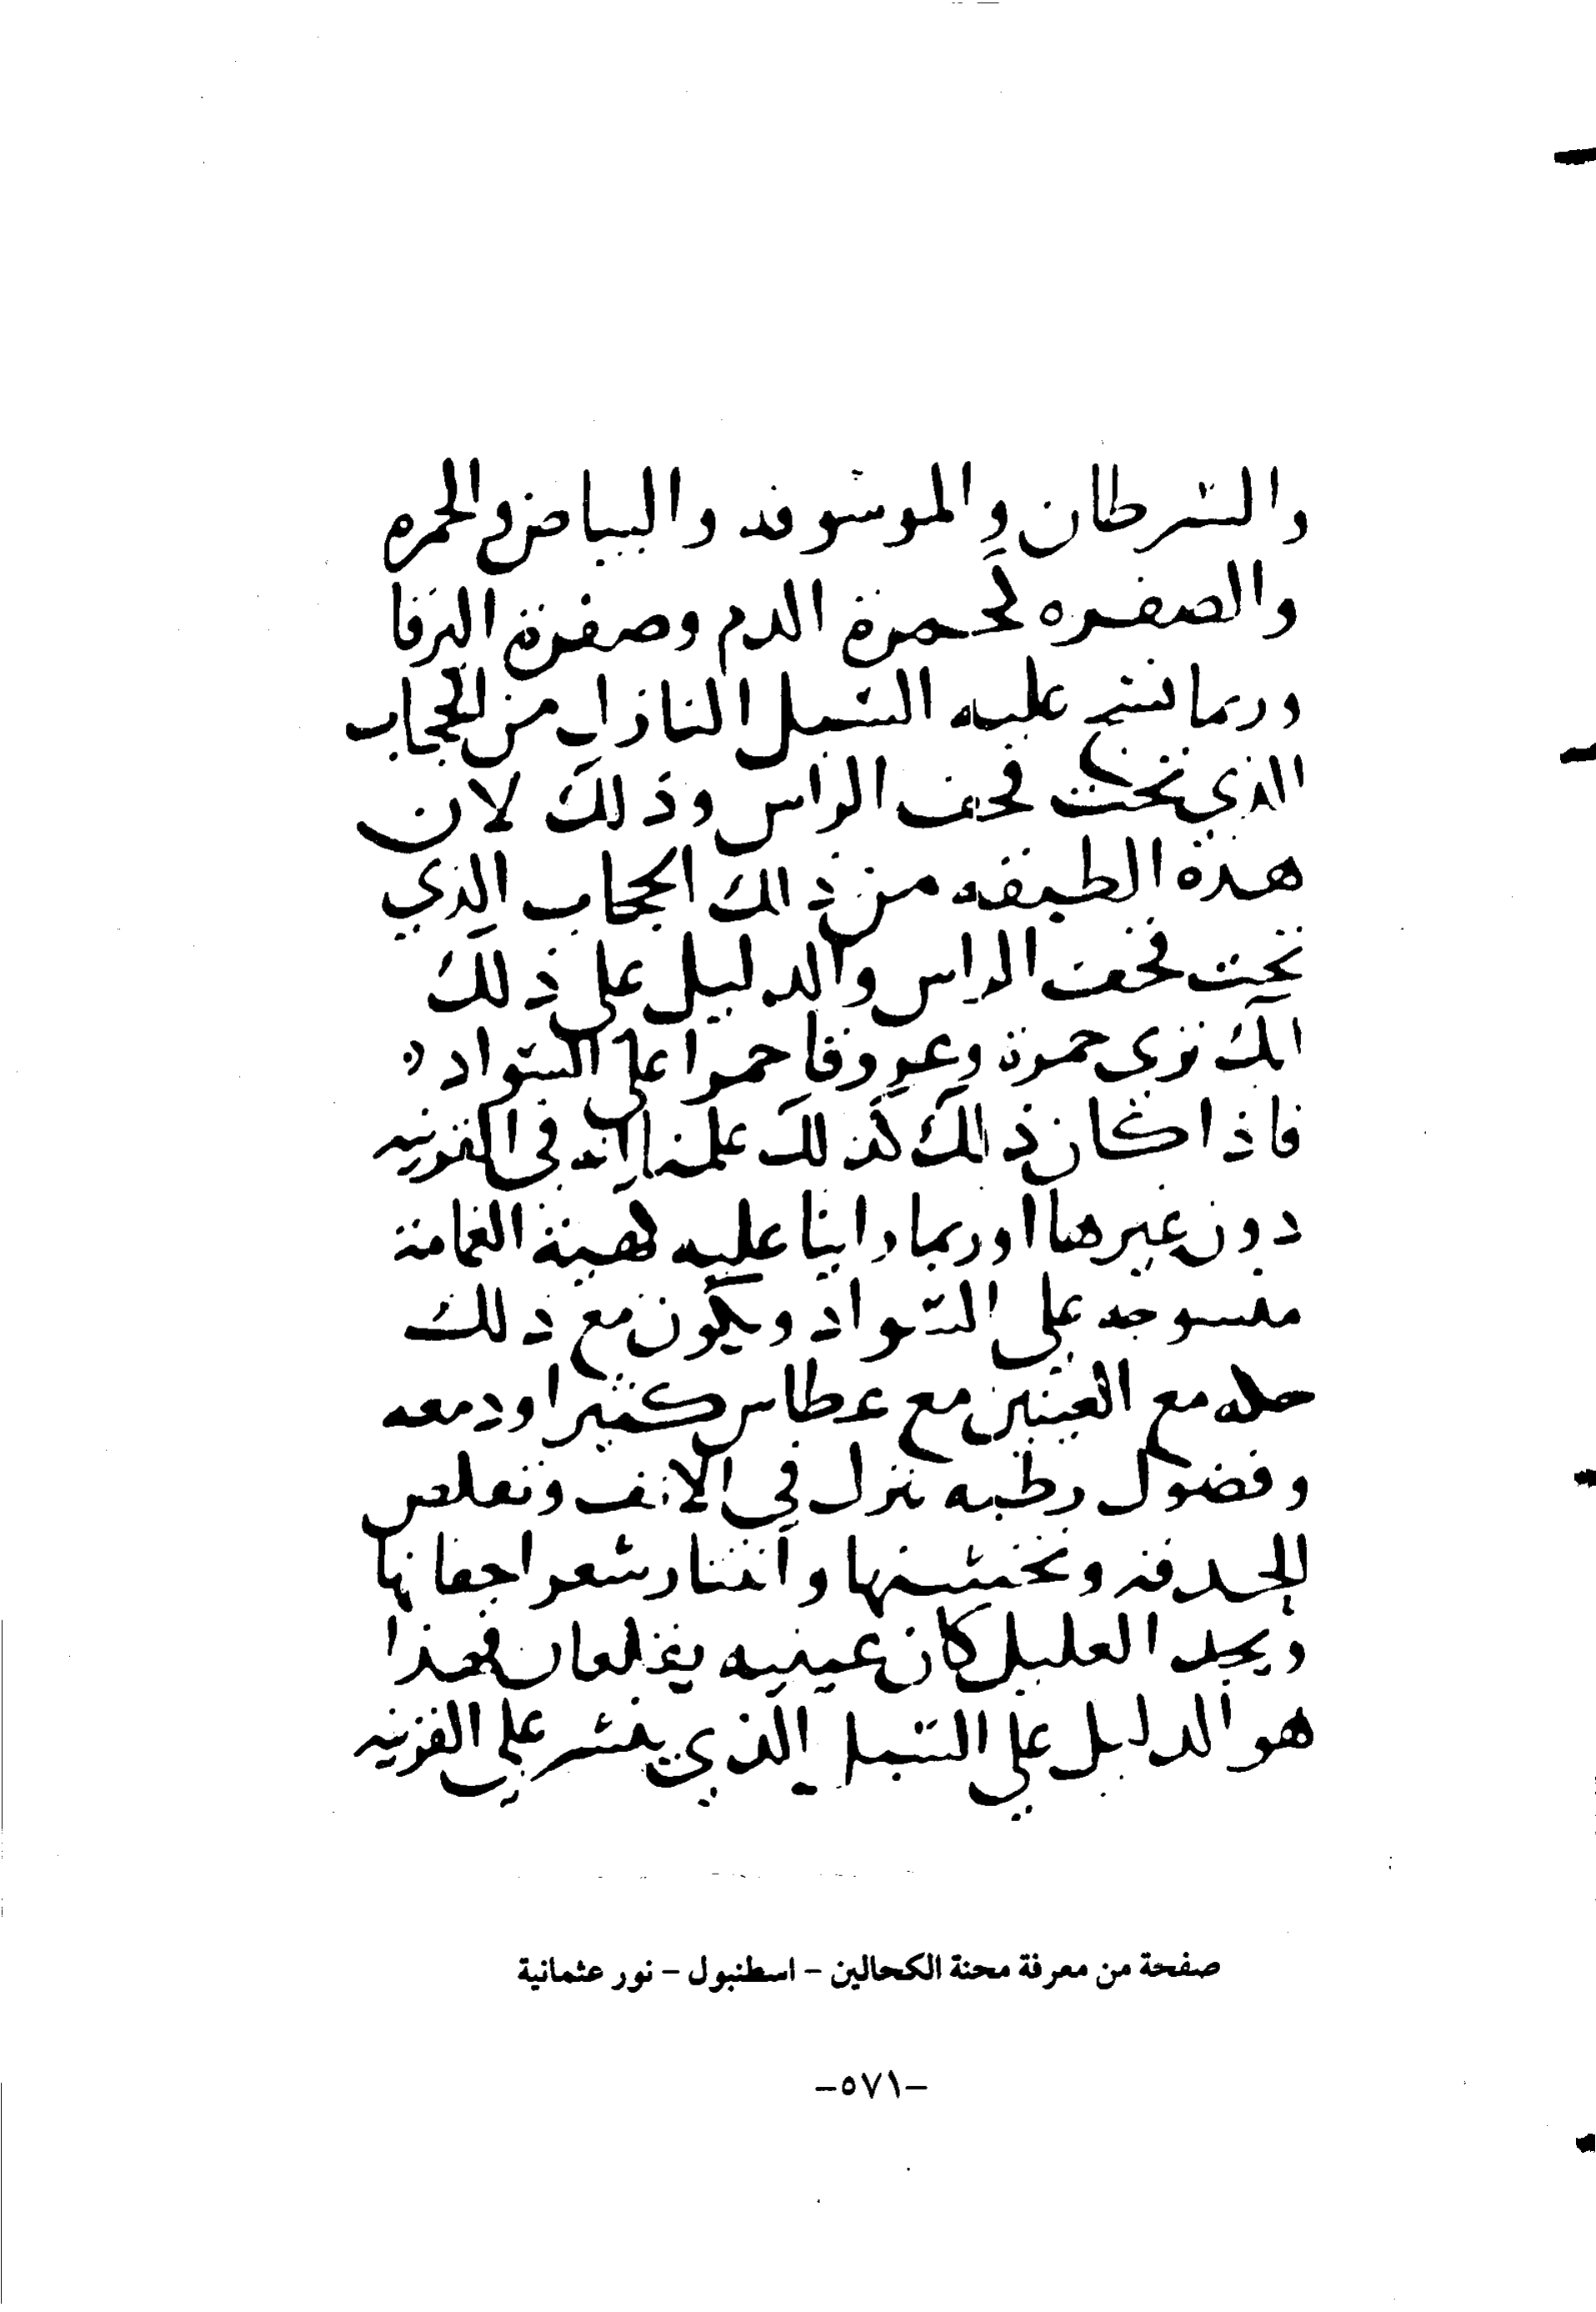 والسرطان والموسوفه والبياض والحمره
والصفره لحمرة الدم وصفرة اليرقا
وربما نسج عليه السبل النازل من الحجاب
الذي تحت قحف الراس وذلك لان
هذه الطبقه من ذلك الحجاب الذي
تحت قحف الراس والدليل على ذلك
انك تري حمرة وعروقا حمرا على السواد
فاذا كان ذلك كذلك علمنا انه في القرنيه
دون غيرها وربما راينا عليه كهية الغمامة
منسوجه على السواد ويكون مع ذلك
حكه مع العينين مع عطاس كثير او دمعه
وفضول رطبه تنزل في الانف وتقلص
الحدقه وتخشنها وانتثار شعر اجفانها
ويجد العليل كان عينيه يقلعان فهذا
هو الدليل على السبل الذي ينتشر على القرنيه
صفحة من معرفة محنة الكحالين – اسطنبول – نور عثمانية
–٥٧١–